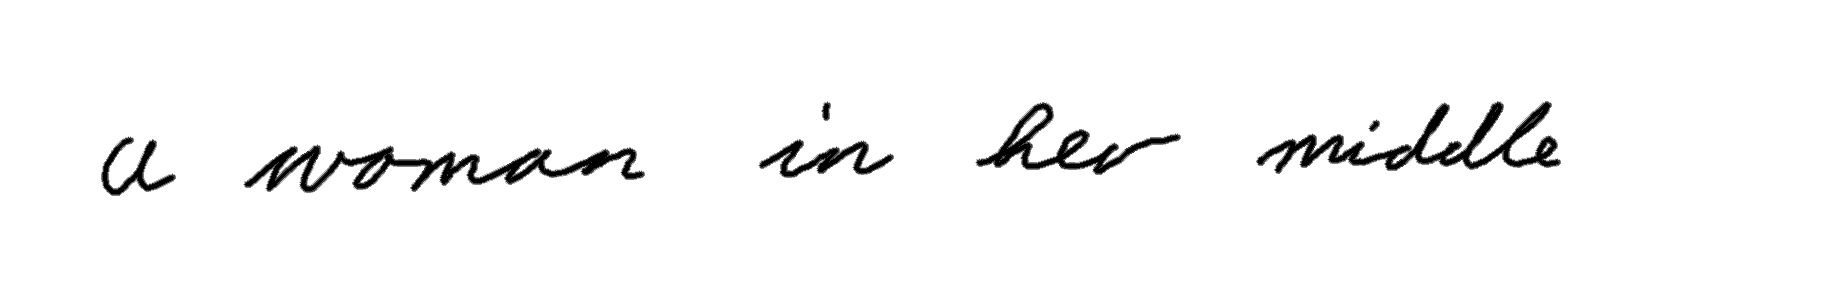 a woman in her middle